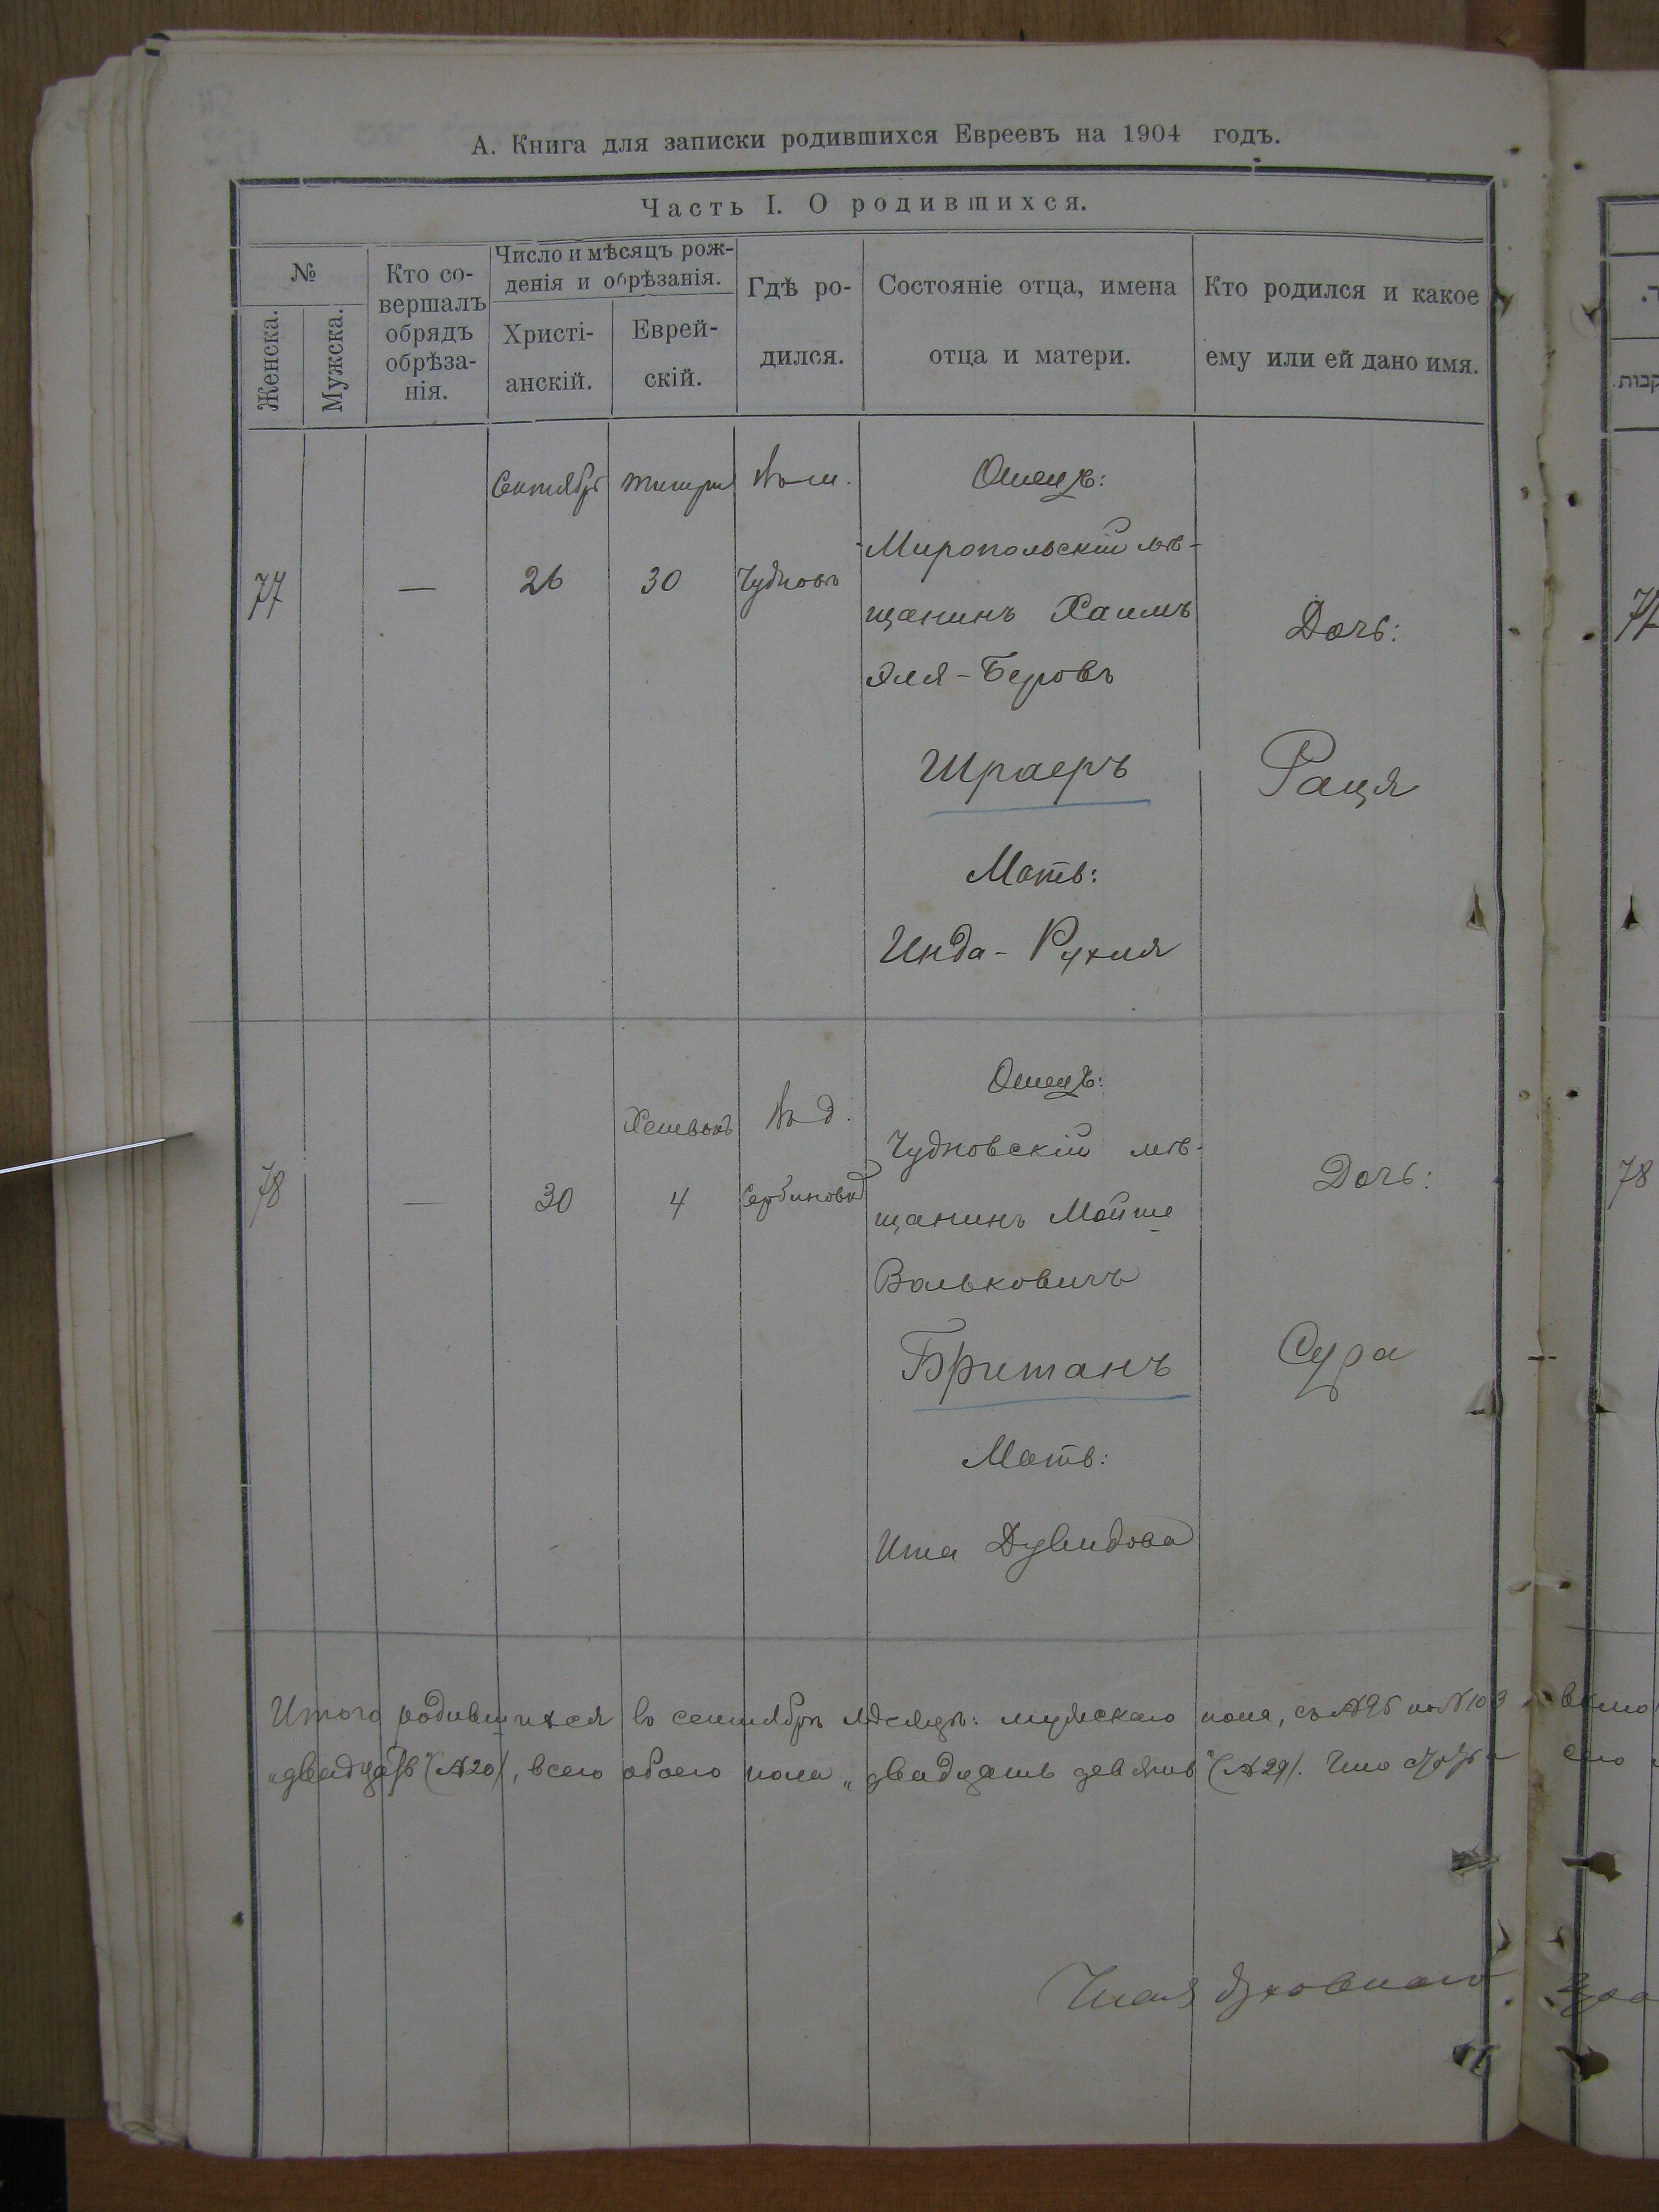 А. Книга для записки родившихся Евреевъ на 1904 годъ.
Часть I. О родившихся.
№
Женска.
Мужска.
Кто со-
вершалъ
обрядъ
обрѣза-
нія.
Число и мѣсяцъ рож-
денія и обрѣзанія.
Христі-
анскій.
Еврей-
скій.
Гдѣ ро-
дился.
Состояніе отца, имена
отца и матери.
Кто родился и какое
ему или ей дано имя.
77
—
Сентябрь
26
Тишри
30
Въ м.
Чудновъ
Отецъ:
Миропольскій мѣ-
щанинъ Хаимъ
Эля-Беровъ
Шраеръ
Мать:
Инда-Рухля
Дочь:
Рася
78
—
30
Хешвонъ
4
Въ д.
Сербиновкѣ
Отецъ:
Чудновскій мѣ-
щанинъ Мойше
Вольковичъ
Британъ
Мать:
Ита Дувидова
Дочь:
Сура
Итого родившихся въ сентябрѣ мѣсяцѣ: мужскаго пола, съ №95 по №103
„двадцать“ (№20), всего обоего пола „двадцать девять“ (№29). Что
Члена духовнаго
קבות.
77
78